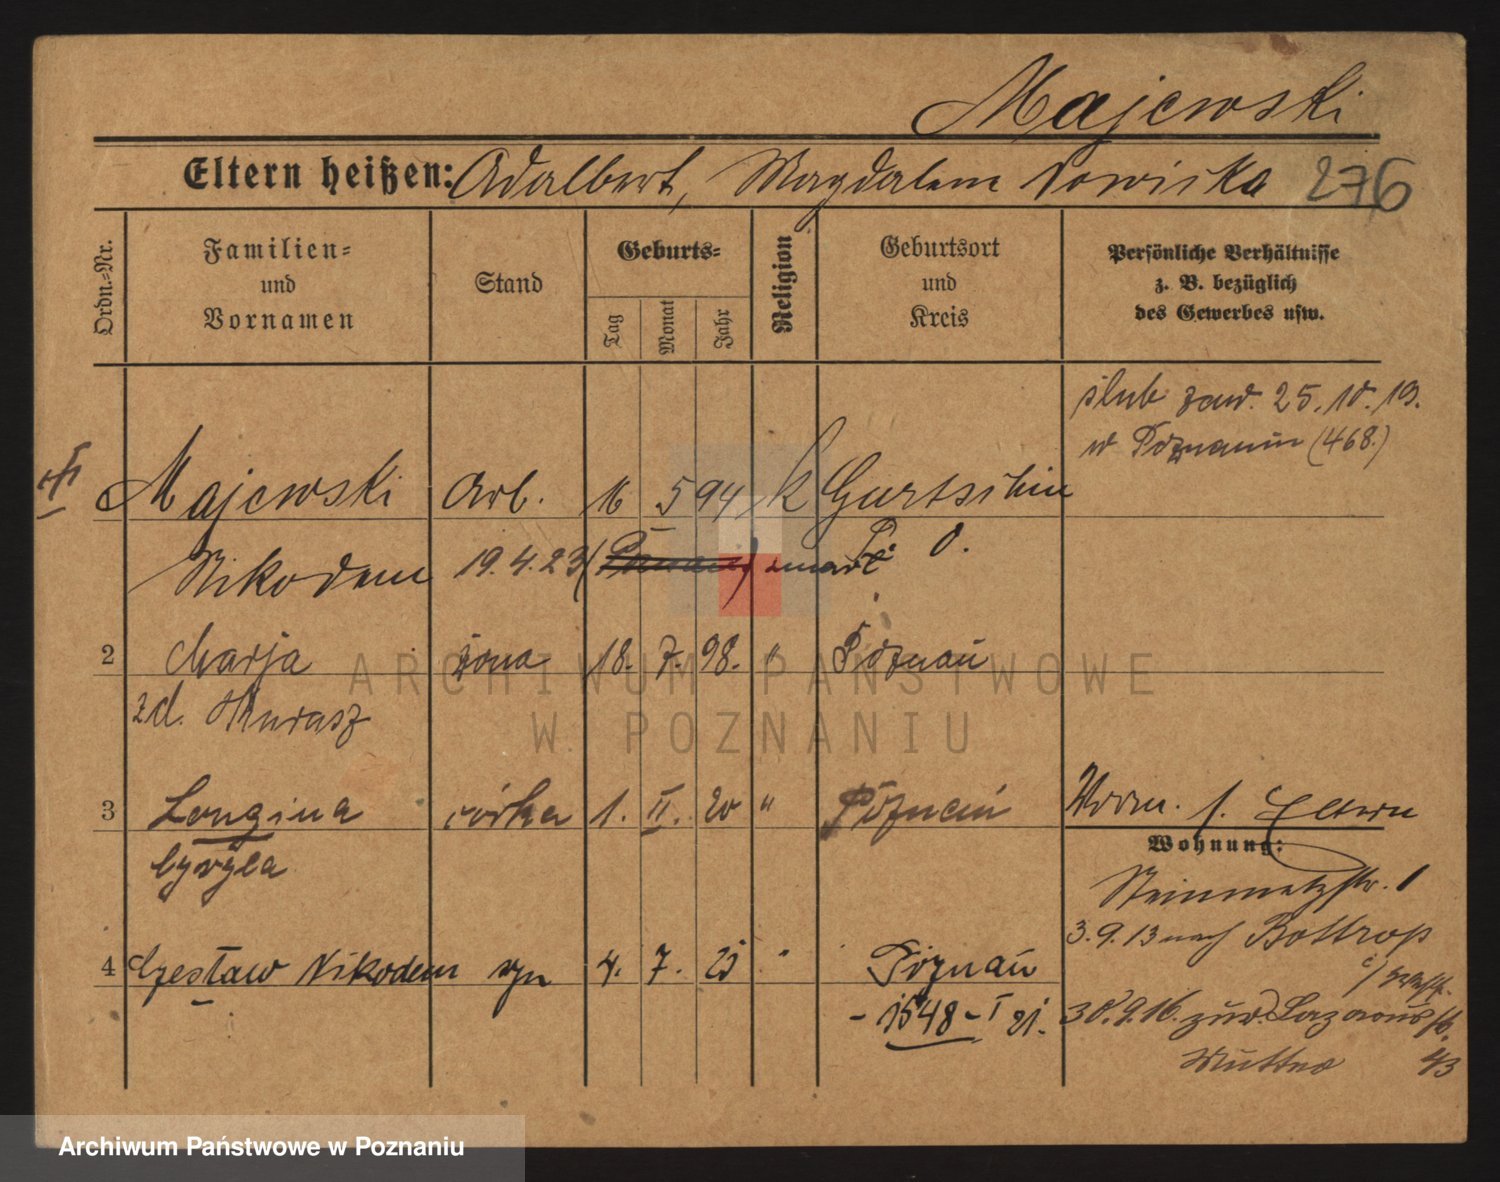 Majewski
Eltern heißen: Adalbert, Magdalena Nowicka 276
Ordn.-Nr.
Familien-
und
Vornamen
Stand
Geburts-
Tag
Monat
Jahr
Religion
Geburtsort
und
Kreis
Persönliche Verhältnisse
z. B. bezüglich
des Gewerbes usw.
ślub zaw. 25.10.19.
w Poznaniu (468.)
Majewski Arb. 16 5 94 k Gurtschin
Nikodem 19.4.23 zmarł P. O.
2 Marja żona 18. 7. 98. " Poznań
zd. Murasz
3 Longina córka 1. II. 20 " Poznań
Cyryla
Wohn. f. Eltern
Wohnung:
Steinmetzstr. 1
3.9.13 nach Bottrop
4 Czesław Nikodem syn 4. 7. 21 " Poznań
- 1548 - I 21.
30.9.16. zur. Lazarusstr.
Mutter 43
ARCHIWUM PAŃSTWOWE
W POZNANIU
Archiwum Państwowe w Poznaniu